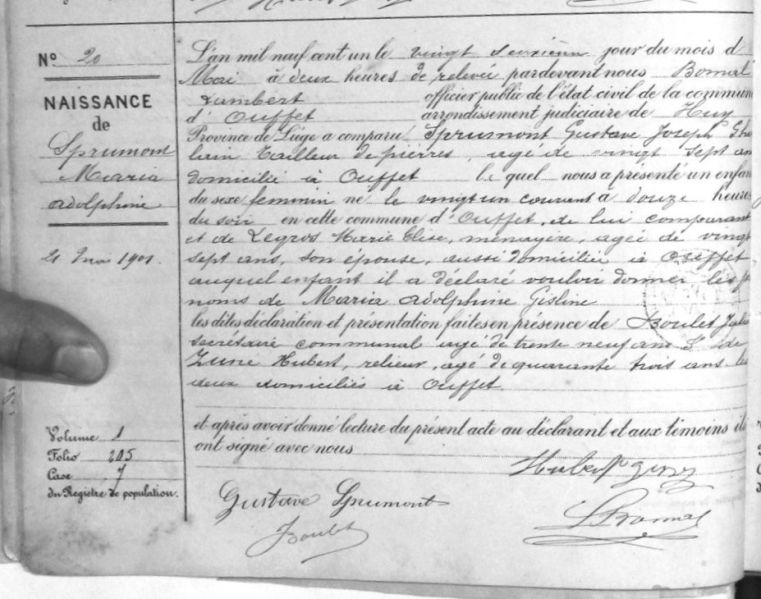 N° 20
NAISSANCE
de
Sprumont
Maria
Adolphine
21 Mai 1901.
Volume 1
Folio 205
Case 7
du Registre de population.
L'an mil neuf cent un le vingt deuxième jour du mois d
Mai à deux heures de relevée pardevant nous Bonmal
Lambert officier public de l'état civil de la commun
d' Ouffet arrondissement judiciaire de Huy
Province de Liége a comparu Sprumont Gustave Joseph Ghis
lain Tailleur de pierres, agé de vingt sept an
domicilié à Ouffet le quel nous a présenté un enfan
du sexe feminin né le vingt un courant à douze heures
du soir en cette commune d'Ouffet, de lui comparant
et de Legros Marie Elise, ménagère, agée de vingt
sept ans, son épouse, aussi domiciliée à Ouffet
auquel enfant il a déclaré vouloir donner les p
noms de Maria Adolphine Gisline
les dites déclaration et présentation faites en présence de Boulet Jules
secrétaire communal agé de trente neuf ans & de
Hubert, relieur, agé de quarante trois ans les
deux domiciliés à Ouffet
et après avoir donné lecture du présent acte au déclarant et aux témoins ils
ont signé avec nous
Hubert
Gustave Sprumont
Boulet
LBonmal